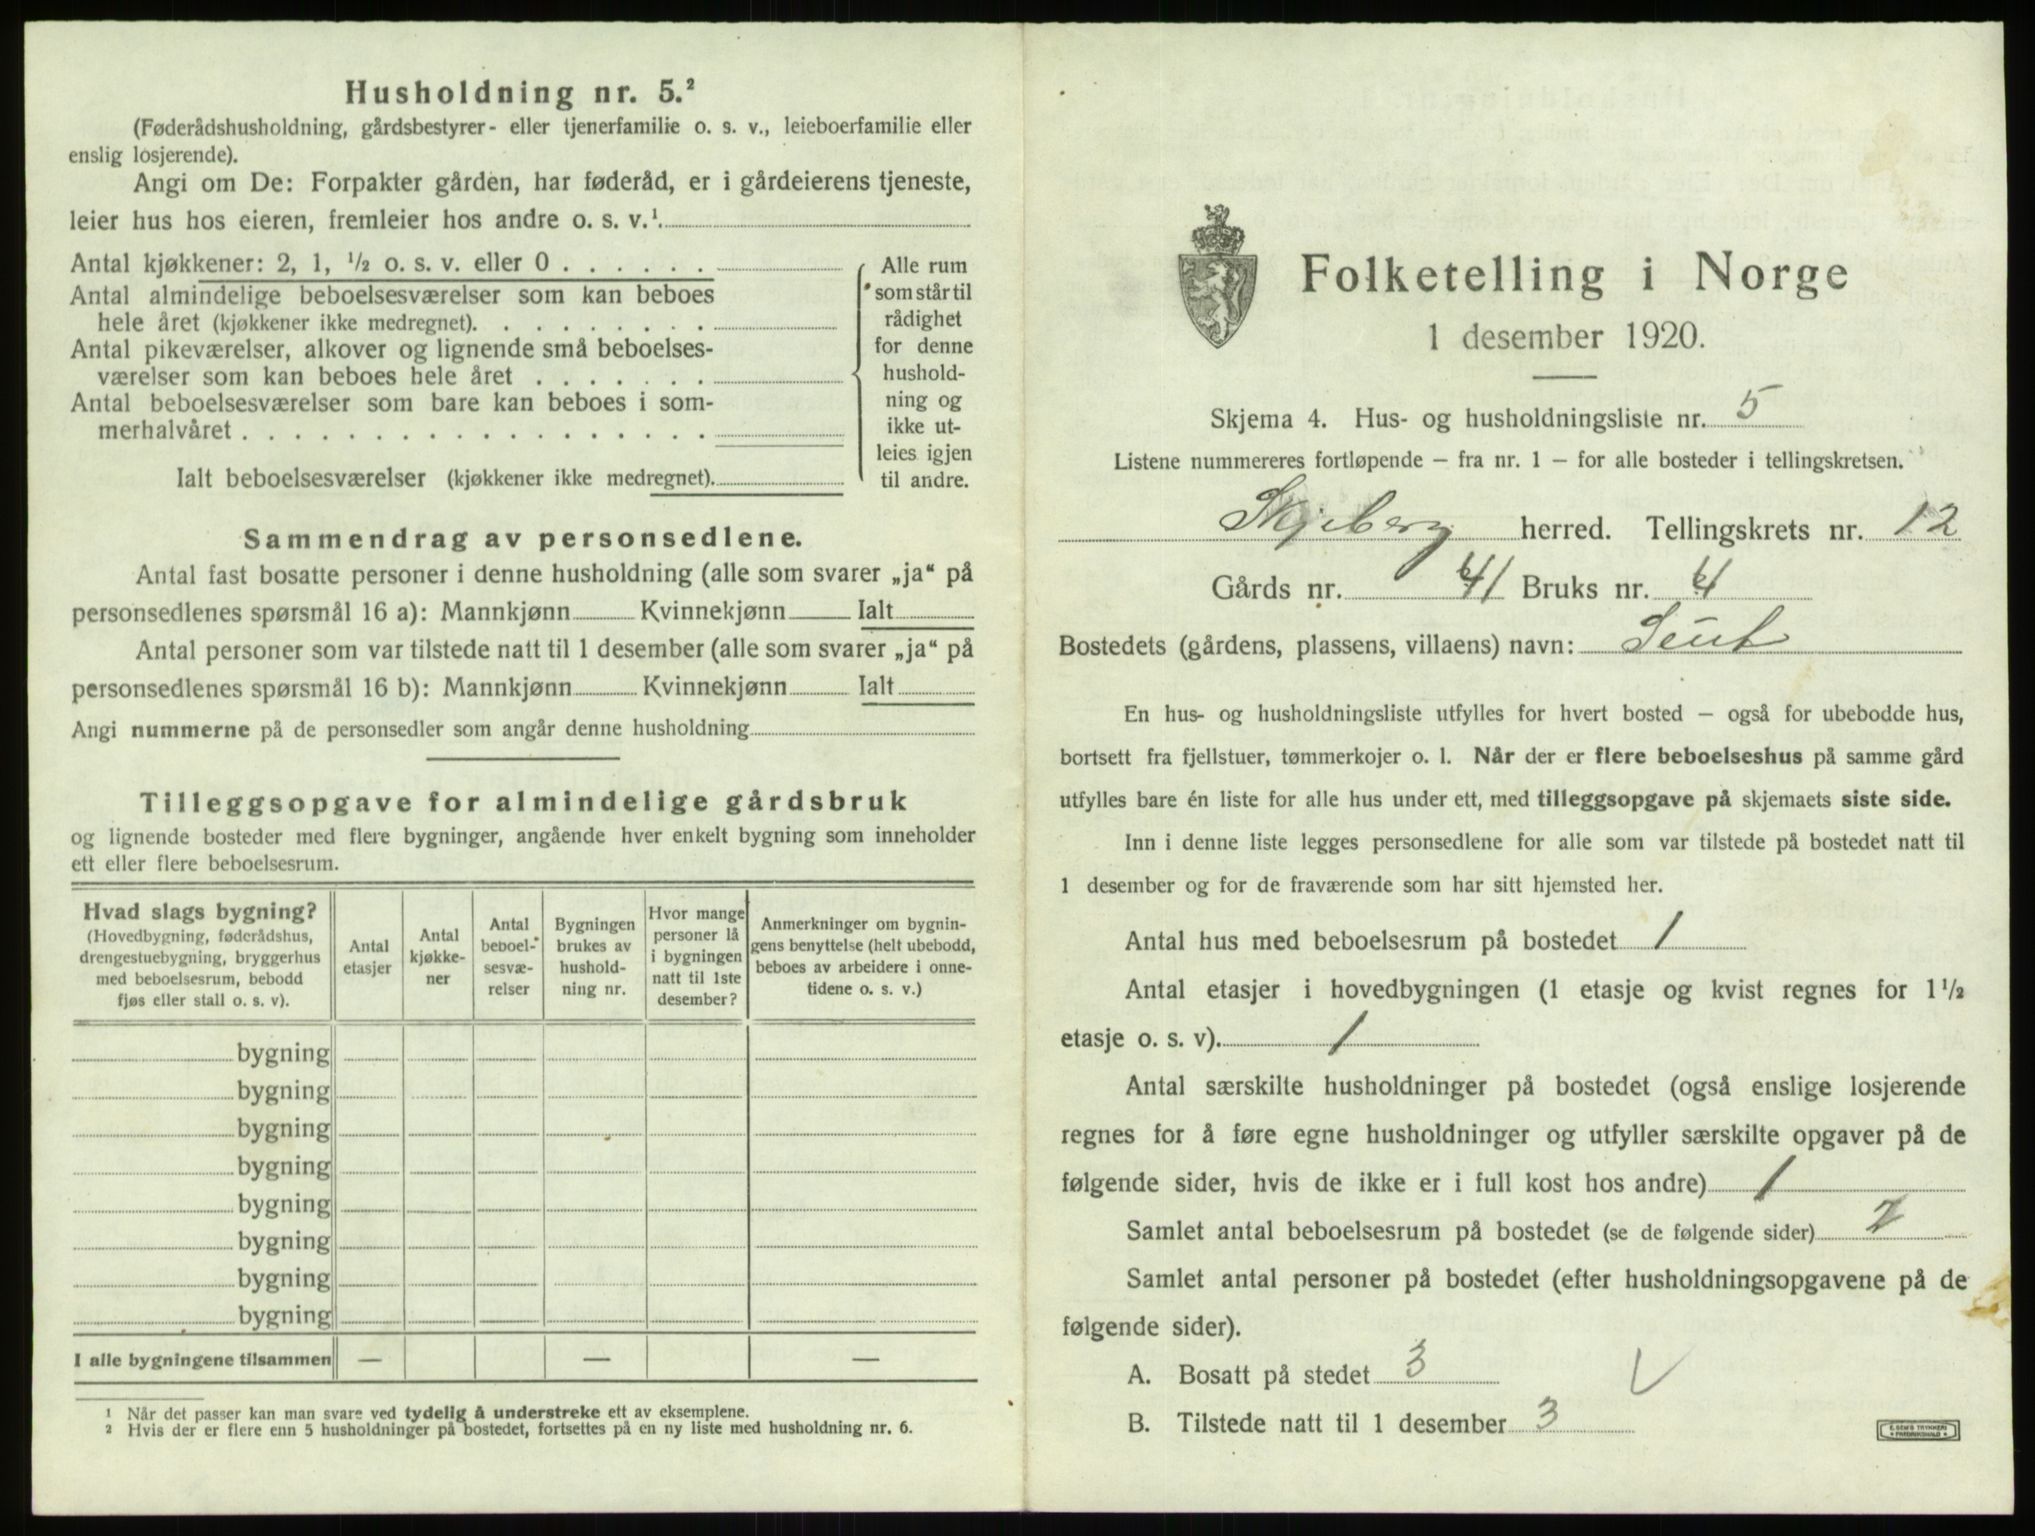 Husholdning nr. 5.²
(Føderådshusholdning, gårdsbestyrer- eller tjenerfamilie o. s. v., leieboerfamilie eller
enslig losjerende).
Angi om De: Forpakter gården, har føderåd, er i gårdeierens tjeneste,
leier hus hos eieren, fremleier hos andre o. s. v.¹
Antal kjøkkener: 2, 1, ½ o. s. v. eller 0
Antal almindelige beboelsesværelser som kan beboes
hele året (kjøkkener ikke medregnet).
Antal pikeværelser, alkover og lignende små beboelses-
værelser som kan beboes hele året
Antal beboelsesværelser som bare kan beboes i som-
merhalvåret
Ialt beboelsesværelser (kjøkkener ikke medregnet).
Alle rum
som står til
rådighet
for denne
hushold-
ning og
ikke ut-
leies igjen
til andre.
Sammendrag av personsedlene.
Antal fast bosatte personer i denne husholdning (alle som svarer „ja“ på
personsedlenes spørsmål 16 a): Mannkjønn Kvinnekjønn Ialt
Antal personer som var tilstede natt til 1 desember (alle som svarer „ja“ på
personsedlenes spørsmål 16 b): Mannkjønn Kvinnekjønn Ialt
Angi nummerne på de personsedler som angår denne husholdning
Tilleggsopgave for almindelige gårdsbruk
og lignende bosteder med flere bygninger, angående hver enkelt bygning som inneholder
ett eller flere beboelsesrum.
Hvad slags bygning?
(Hovedbygning, føderådshus,
drengestuebygning, bryggerhus
med beboelsesrum, bebodd
fjøs eller stall o. s. v).
Antal
etasjer
Antal
kjøkke-
ner
Antal
beboel-
sesvæ-
relser
Bygningen
brukes av
hushold-
ning nr.
Hvor mange
personer lå
i bygningen
natt til 1ste
desember?
Anmerkninger om bygnin-
gens benyttelse (helt ubebodd,
beboes av arbeidere i onne-
tidene o. s. v.)
bygning
bygning
bygning
bygning
bygning
bygning
bygning
bygning
I alle bygningene tilsammen — — —
¹ Når det passer kan man svare ved tydelig å understreke ett av eksemplene.
² Hvis der er flere enn 5 husholdninger på bostedet, fortsettes på en ny liste med husholdning nr. 6.
Folketelling i Norge
1 desember 1920.
Skjema 4. Hus- og husholdningsliste nr. 5
Listene nummereres fortløpende – fra nr. 1 – for alle bosteder i tellingskretsen.
Skjeberg herred. Tellingskrets nr. 12
Gårds nr. 41 Bruks nr. 4
Bostedets (gårdens, plassens, villaens) navn:
En hus- og husholdningsliste utfylles for hvert bosted – også for ubebodde hus,
bortsett fra fjellstuer, tømmerkojer o. l. Når der er flere beboelseshus på samme gård
utfylles bare én liste for alle hus under ett, med tilleggsopgave på skjemaets siste side.
Inn i denne liste legges personsedlene for alle som var tilstede på bostedet natt til
1 desember og for de fraværende som har sitt hjemsted her.
Antal hus med beboelsesrum på bostedet 1
Antal etasjer i hovedbygningen (1 etasje og kvist regnes for 1½
etasje o. s. v). 1
Antal særskilte husholdninger på bostedet (også enslige losjerende
regnes for å føre egne husholdninger og utfyller særskilte opgaver på de
følgende sider, hvis de ikke er i full kost hos andre) 1
Samlet antal beboelsesrum på bostedet (se de følgende sider) 2
Samlet antal personer på bostedet (efter husholdningsopgavene på de
følgende sider).
A. Bosatt på stedet 3
B. Tilstede natt til 1 desember 3